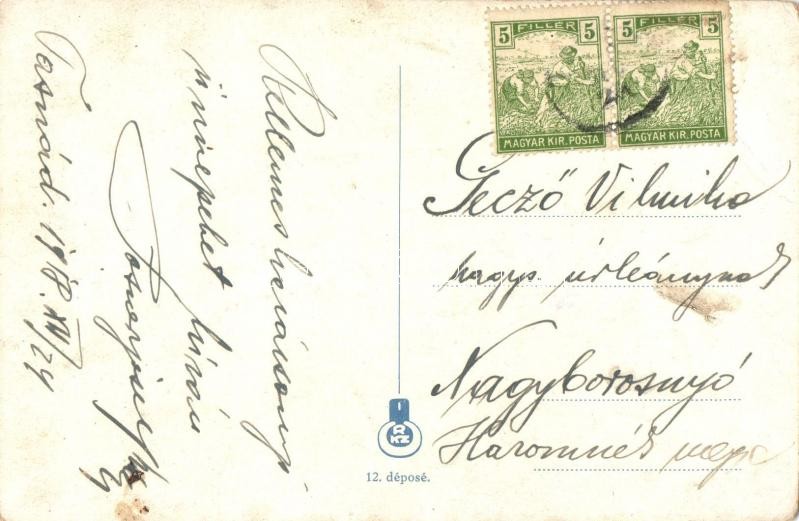 Tasnád. 1918. XII/24
Kellemes karácsonyi
ünnepeket kíván
5 FILLÉR 5
MAGYAR KIR. POSTA
5 FILLÉR 5
MAGYAR KIR. POSTA
Geczö Vilmika
nagys. úrleánynak
Nagyborosnyó
Haromszék megye
RKZ
12. déposé.